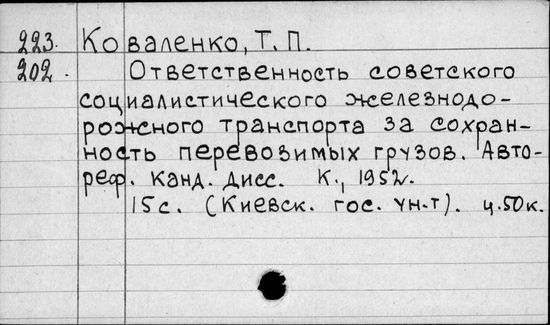 223. Коваленко, Т. П.
202. Ответственность советского
социалистического железнодо-
рожного транспорта за сохран-
ность перевозимых грузов. Авто-
реф. канд. дисс. К., 1952.
15 с. (Киевск. гос. ун-т). ц. 50 к.